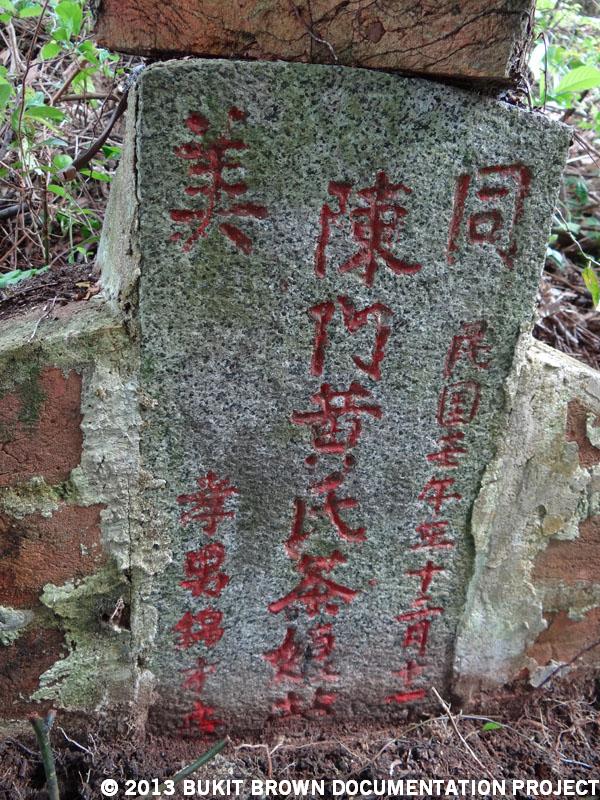 同美
民国年十二月十一
陳门黄氏茶娘
孝男錦才
© 2013 BUKIT BROWN DOCUMENTATION PROJECT